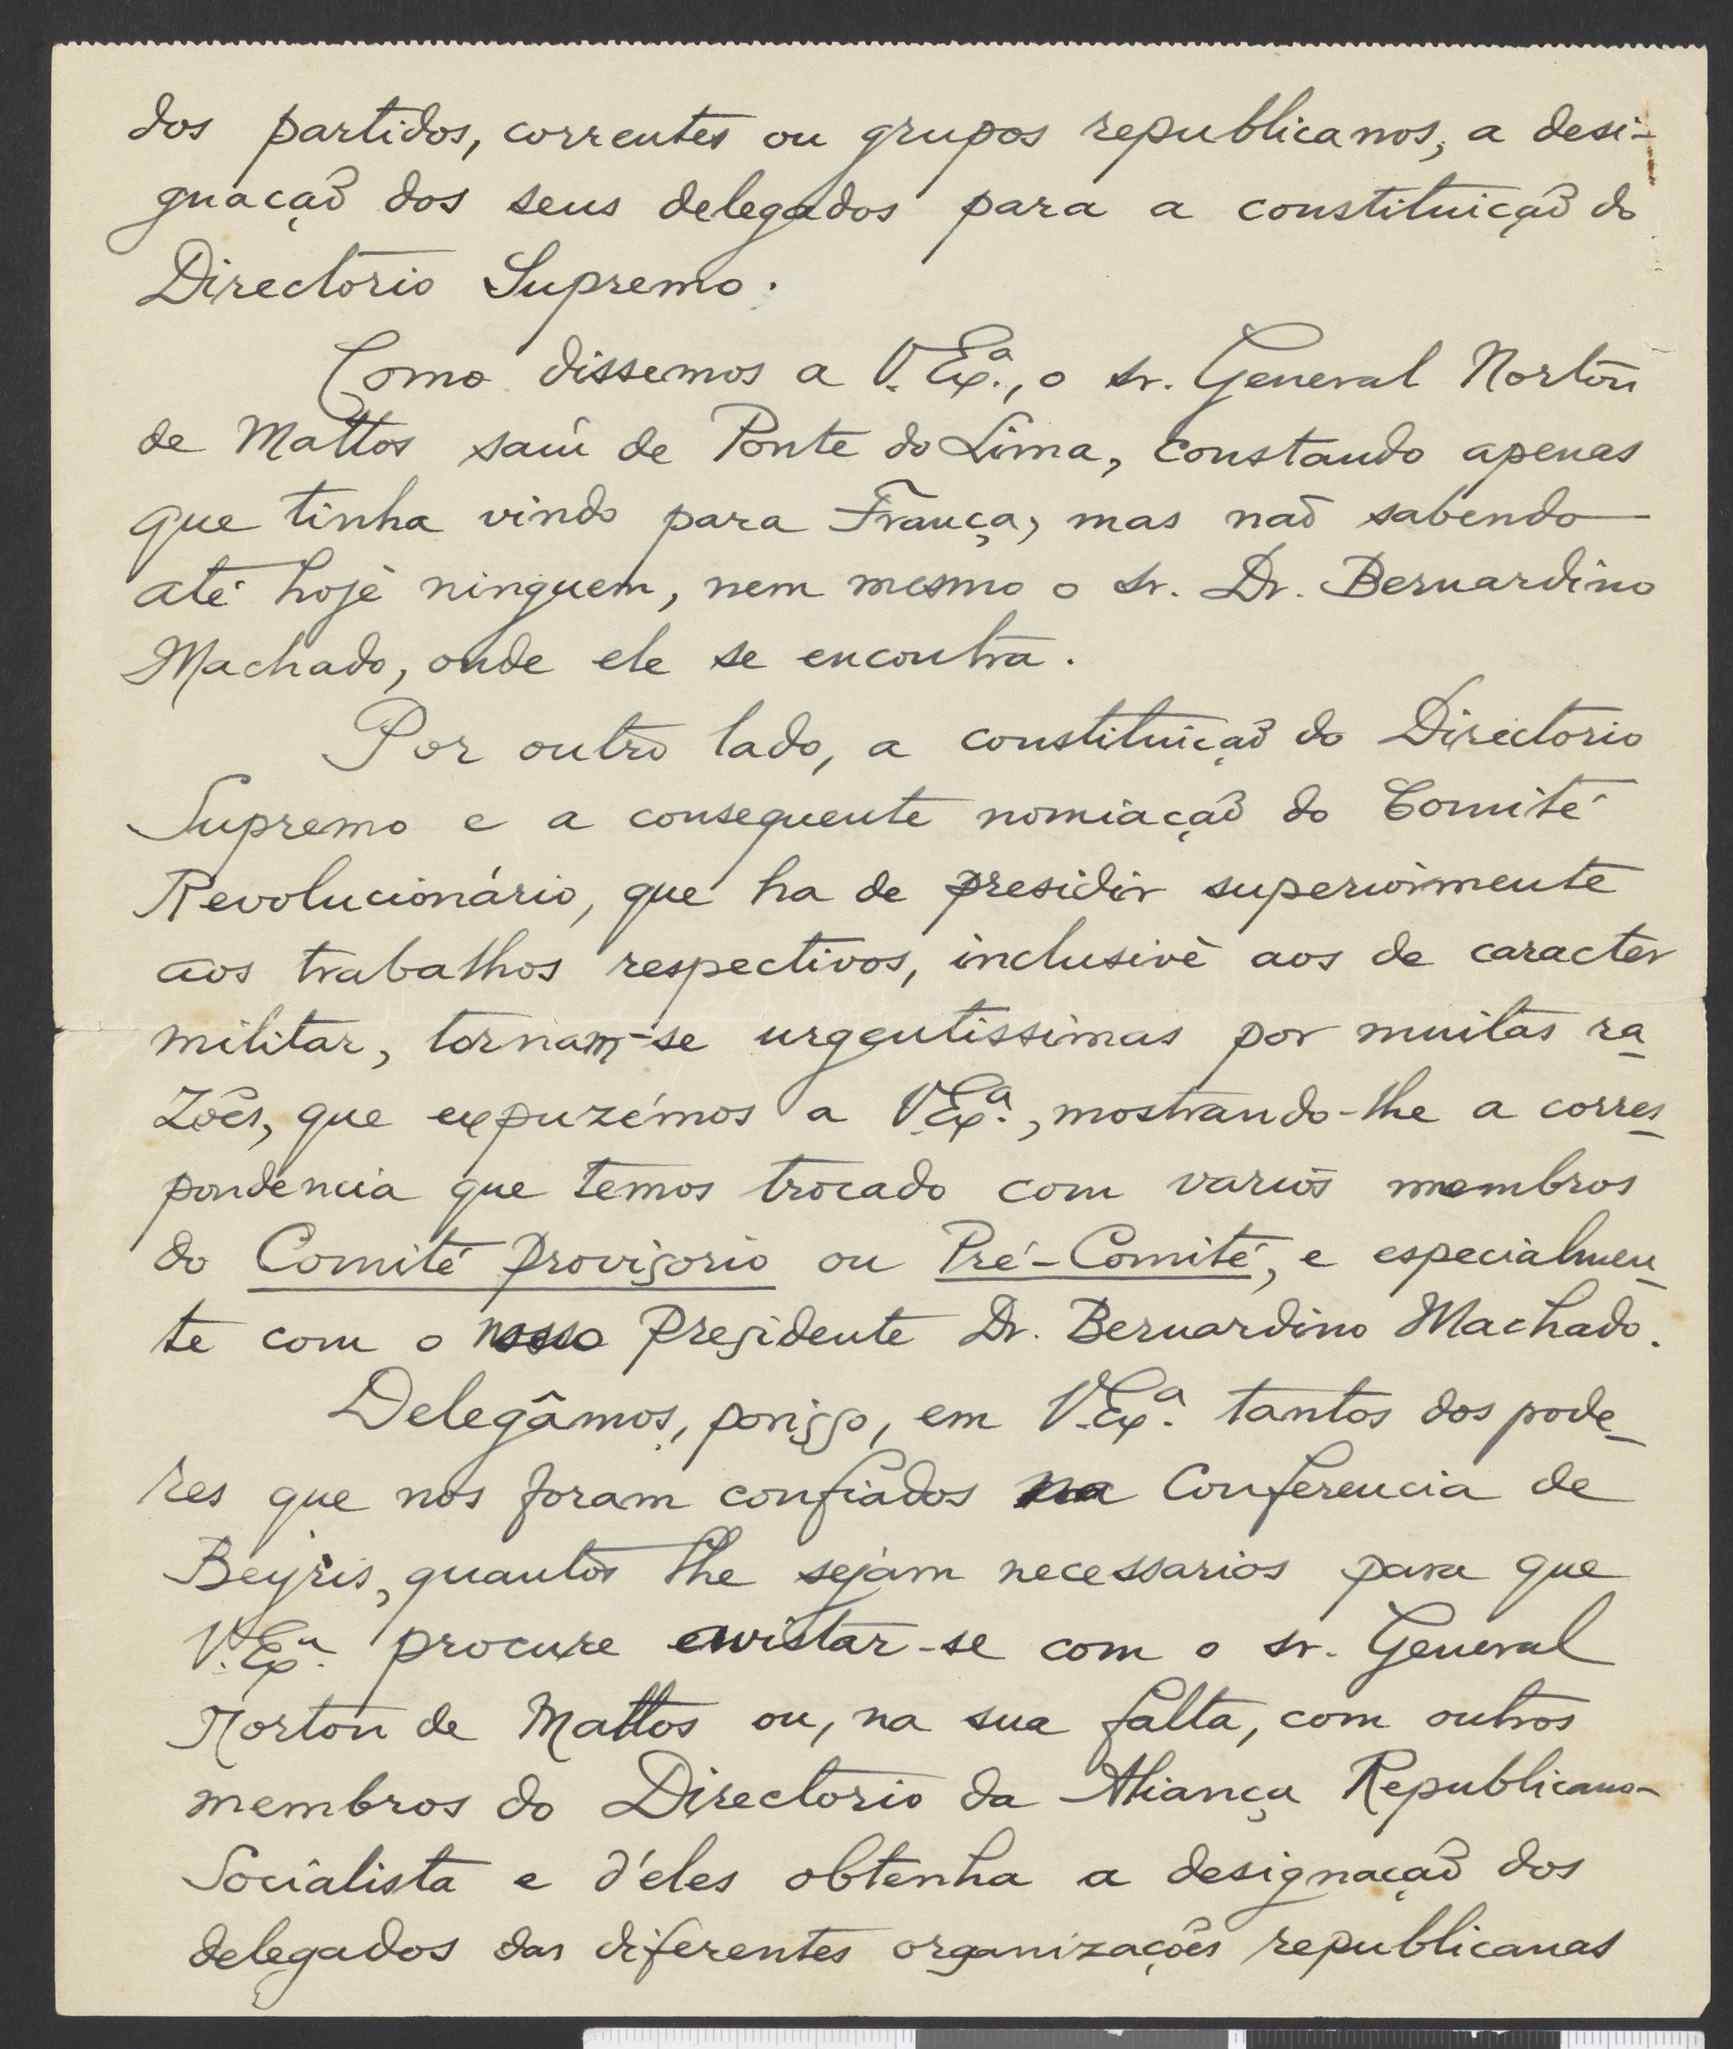 dos partidos, correntes ou grupos republicanos, a desi-
gnação dos seus delegados para a constituição do
Directorio Supremo.
Como dissemos a V. Ex.ª, o sr. General Norton
de Mattos saíu de Ponte do Lima, constando apenas
que tinha vindo para França, mas não sabendo
até hoje ninguem, nem mesmo o sr. Dr. Bernardino
Machado, onde ele se encontra.
Por outro lado, a constituição do Directorio
Supremo e a consequente nomiação do Comité
Revolucionário, que ha de presidir superiormente
aos trabalhos respectivos, inclusivè aos de caracter
militar, tornam-se urgentissimas por muitas ra-
zões, que expuzémos a V. Ex.ª, mostrando-lhe a corres-
pondencia que temos trocado com varios membros
do Comité provisorio ou Pré-Comité, e especialmen-
te com o nosso Presidente Dr. Bernardino Machado.
Delegâmos, porisso, em V. Ex.ª tantos dos pode-
res que nos foram confiados na Conferencia de
Beyris, quantos lhe sejam necessarios para que
V. Ex.ª procure avistar-se com o sr. General
Norton de Mattos ou, na sua falta, com outros
membros do Directorio da Aliança Republicano-
Socialista e d'éles obtenha a designação dos
delegados das diferentes organizações republicanas